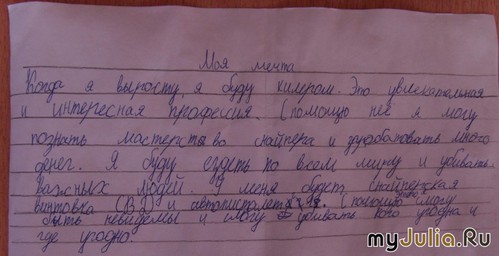 Моя мечта
Когда я вырасту, я буду килером. Это увлекательная
и интересная профессия. С помощью неё я могу
познать мастерство снайпера и зарабатовать много
денег. Я буду ездеть по всем миру и убивать
важных людей. У меня будет снайперская
винтовка (ВД) и автопистолет. С помощью могу
быть невидемы и могу убивать кого угодна и
где угодно.
myJulia.Ru